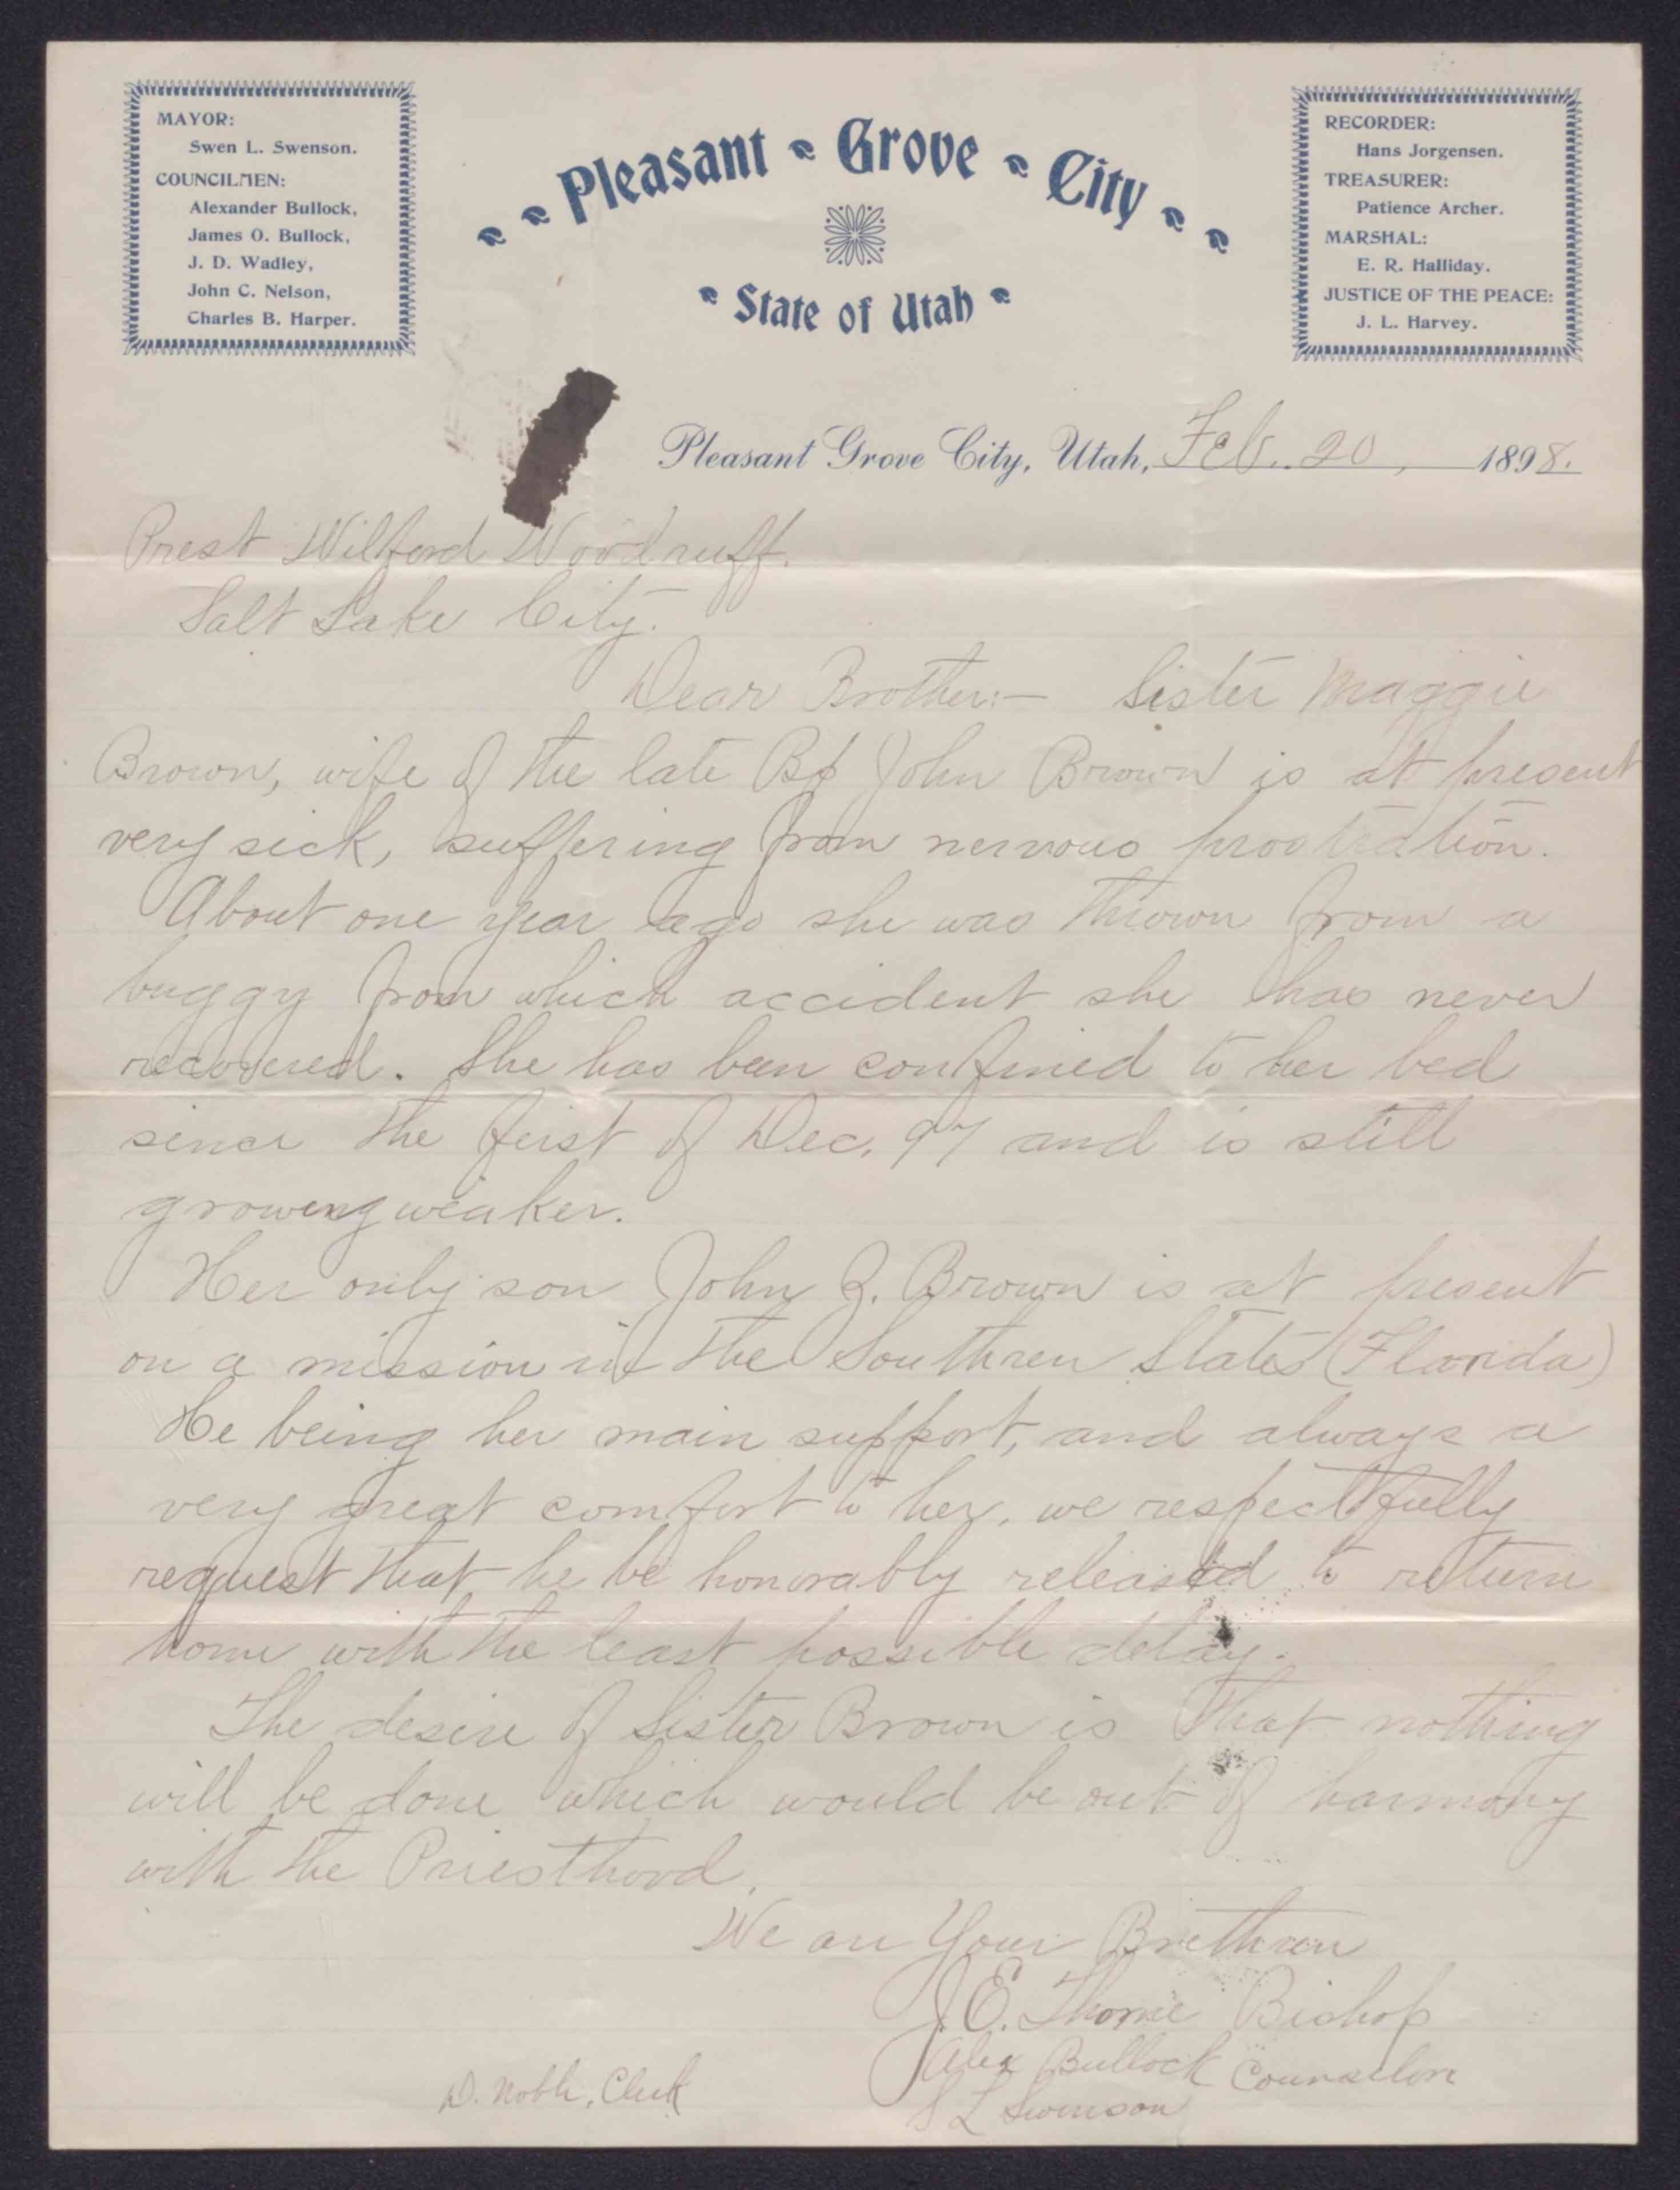 MAYOR:
Swen L. Swenson.
COUNCILMEN:
Alexander Bullock,
James O. Bullock,
J. D. Wadley,
John C. Nelson,
Charles B. Harper.
Pleasant Grove City
State of Utah
RECORDER:
Hans Jorgensen.
TREASURER:
Patience Archer.
MARSHAL:
E. R. Halliday.
JUSTICE OF THE PEACE:
J. L. Harvey.
Pleasant Grove City, Utah, Feb. 20, 1898.
Prest Wilford Woodruff.
Salt Lake City.
Dear Brother:- Sister Maggie
Brown, wife of the late Bp John Brown is at present
very sick, suffering from nervous prostration.
About one year ago she was thrown from a
buggy from which accident she has never
recovered. She has been confined to her bed
since the first of Dec. 97 and is still
growing weaker.
Her only son John Z. Brown is at present
on a mission in the Southren States (Florida)
He being her main support, and always a
very great comfort to her, we respectfully
request that he be honorably released to return
home with the least possible delay.
The desire of Sister Brown is that nothing
will be done which would be out of harmony
with the Priesthood.
We are Your Brethren
J. E. Thorne Bishop
Alex Bullock Counselors
S L Swenson
D. Noble, Clerk